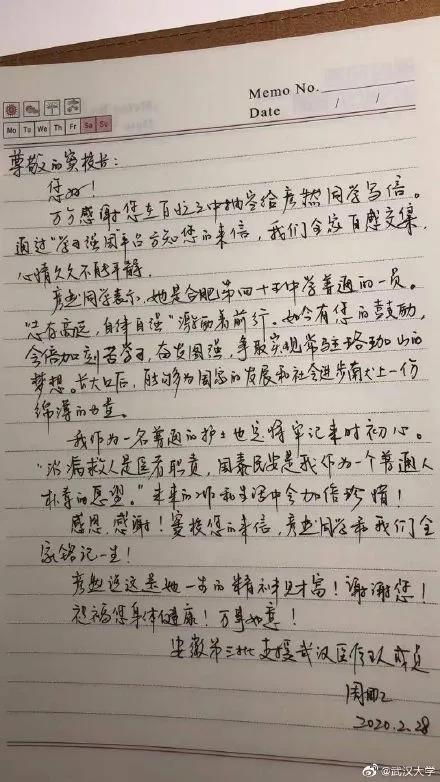 Memo No.
Date / /
Mo Tu We Th Fr Sa Su
尊敬的窦校长:
您好!
万分感谢您在百忙之中抽空给彦然同学写信。
通过“学习强国平台方知您的来信,我们全家百感交集,
心情久久不能平静。
彦然同学表示,她是合肥第四十五中学普通的一员。
“志存高远,自律自强”激励着前行。如今有您的鼓励,
会倍加刻苦学习,奋发图强,争取实现常驻珞珈山的
梦想。长大后,能够为国家的发展和社会进步献上一份
绵薄的力量。
我作为一名普通的护士也定将牢记来时初心。
“治病救人是医者职责,国泰民安是我作为一个普通人
朴素的愿望。”未来的工作和生活中会加倍珍惜!
感恩,感谢!窦校长的来信,彦然同学和我们全
家铭记一生!
彦然说这是她一生的精神财富!谢谢您!
祝福您身体健康!万事如意!
安徽第三批支援武汉医疗队成员
周
2020.2.28
@武汉大学